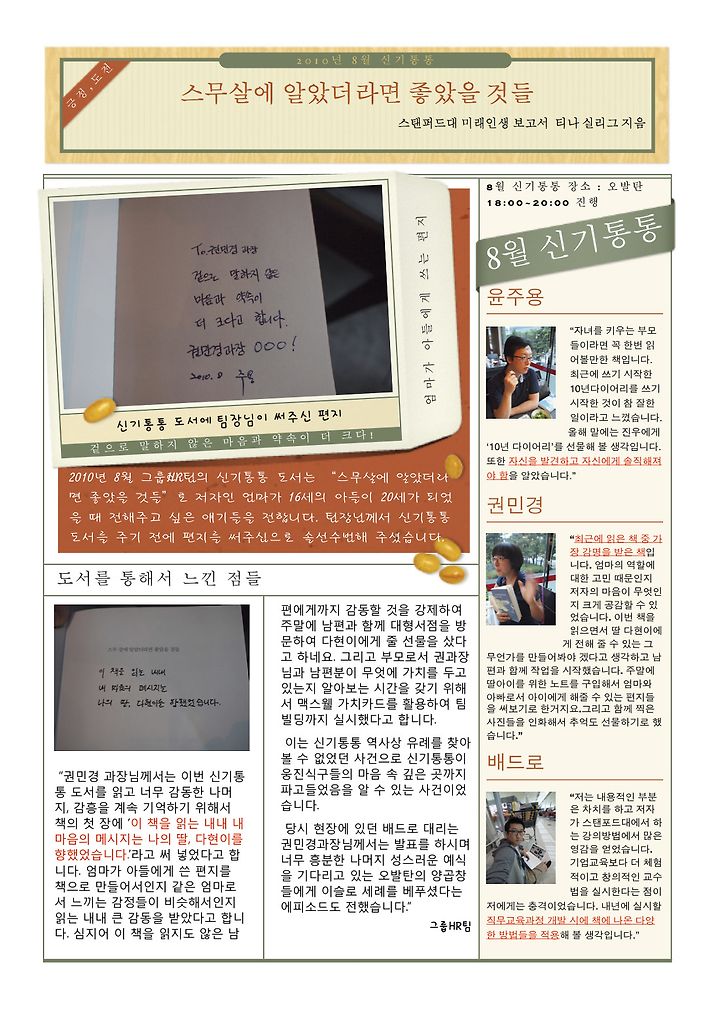 2010년 8월 신기통통
긍정, 도전
스무살에 알았더라면 좋았을 것들
스탠퍼드대 미래인생 보고서 티나 실리그 지음
To. 권민경 과장
겉으로 말하지 않은
마음과 약속이
더 크다고 합니다.
권민경과장 OOO!
2010. 8 주용
엄마가 아들에게 쓰는 편지
신기통통 도서에 팀장님이 써주신 편지
겉으로 말하지 않은 마음과 약속이 더 크다!
2010년 8월 그룹HR팀의 신기통통 도서는 “스무살에 알았더라
면 좋았을 것들” 로 저자인 엄마가 16세의 아들이 20세가 되었
을 때 전해주고 싶은 얘기들을 전합니다. 팀장님께서 신기통통
도서를 주기 전에 편지를 써주신으로 솔선수범해 주셨습니다.
도서를 통해서 느낀 점들
스무 살에 알았더라면 좋았을 것들
이 책을 읽는 내내
내 마음의 메시지는
나의 딸, 다현이를 향했었습니다.
“권민경 과장님께서는 이번 신기통
통 도서를 읽고 너무 감동한 나머
지, 감흥을 계속 기억하기 위해서
책의 첫 장에 ‘이 책을 읽는 내내 내
마음의 메시지는 나의 딸, 다현이를
향했었습니다.’라고 써 넣었다고 합
니다. 엄마가 아들에게 쓴 편지를
책으로 만들어서인지 같은 엄마로
서 느끼는 감정들이 비슷해서인지
읽는 내내 큰 감동을 받았다고 합니
다. 심지어 이 책을 읽지도 않은 남
편에게까지 감동할 것을 강제하여
주말에 남편과 함께 대형서점을 방
문하여 다현이에게 줄 선물을 샀다
고 하네요. 그리고 부모로서 권과장
님과 남편분이 무엇에 가치를 두고
있는지 알아보는 시간을 갖기 위해
서 맥스웰 가치카드를 활용하여 팀
빌딩까지 실시했다고 합니다.
이는 신기통통 역사상 유례를 찾아
볼 수 없었던 사건으로 신기통통이
웅진식구들의 마음 속 깊은 곳까지
파고들었음을 알 수 있는 사건이었
습니다.
당시 현장에 있던 배드로 대리는
권민경과장님께서는 발표를 하시며
너무 흥분한 나머지 성스러운 예식
을 기다리고 있는 오발탄의 양곱창
들에게 이슬로 세례를 베푸셨다는
에피소드도 전했습니다.”
그룹HR팀
8월 신기통통 장소 : 오발탄
18:00~20:00 진행
8월 신기통통
윤주용
“자녀를 키우는 부모
들이라면 꼭 한번 읽
어볼만한 책입니다.
최근에 쓰기 시작한
10년다이어리를 쓰기
시작한 것이 참 잘한
일이라고 느꼈습니다.
올해 말에는 진우에게
‘10년 다이어리’를 선물해 볼 생각입니다.
또한 자신을 발견하고 자신에게 솔직해져
야 함을 알았습니다.”
권민경
“최근에 읽은 책 중 가
장 감명을 받은 책입
니다. 엄마의 역할에
대한 고민 때문인지
저자의 마음이 무엇인
지 크게 공감할 수 있
었습니다. 이번 책을
읽으면서 딸 다현이에
게 전해 줄 수 있는 그
무언가를 만들어봐야 겠다고 생각하고 남
편과 함께 작업을 시작했습니다. 주말에
딸아이를 위한 노트를 구입해서 엄마와
아빠로서 아이에게 해줄 수 있는 편지들
을 써보기로 한거지요.그리고 함께 찍은
사진들을 인화해서 추억도 선물하기로 했
습니다.”
배드로
“저는 내용적인 부분
은 차치를 하고 저자
가 스탠포드대에서 하
는 강의방법에서 많은
영감을 얻었습니다.
기업교육보다 더 체험
적이고 창의적인 교수
법을 실시한다는 점이
저에게는 충격이었습니다. 내년에 실시할
직무교육과정 개발 시에 책에 나온 다양
한 방법들을 적용해 볼 생각입니다.”